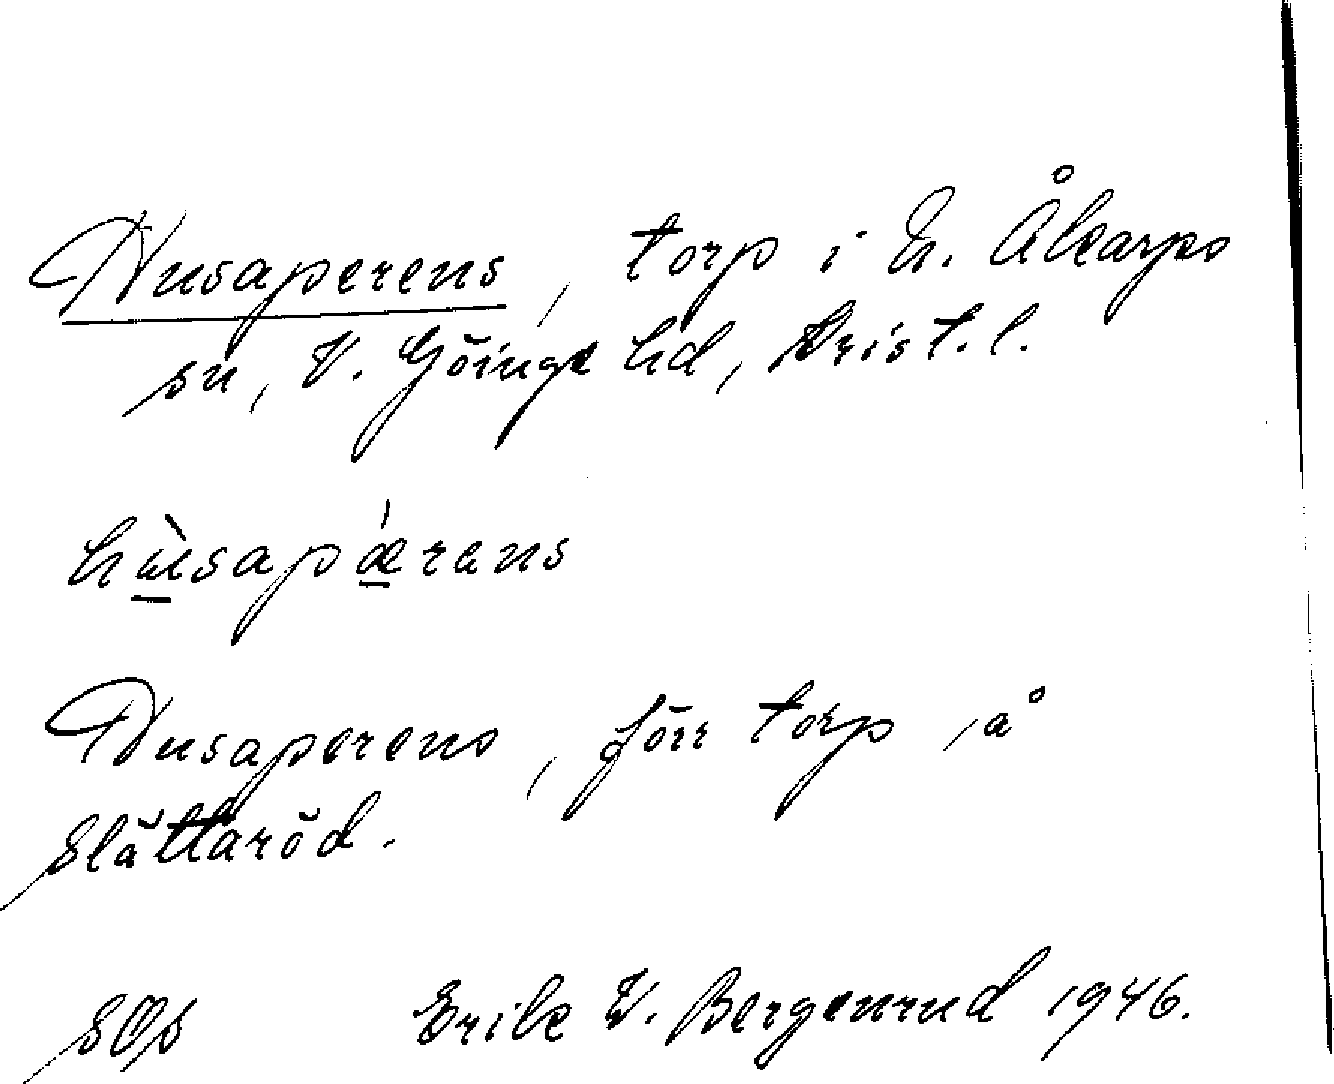 Husaperens, torp i N. Åkarps
sn, V. Göinge hd, Krist. l.
hùsapǽrens
Husaperens, förr torp, å
Slättaröd.
SOS Erik W. Bergenrud 1946.